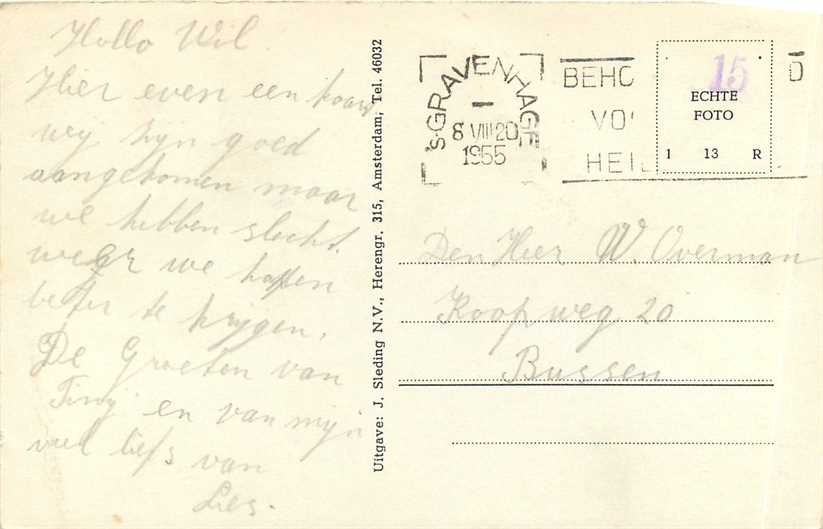 Hallo Wil
Hier even een kaart
wij zijn goed
aangekomen maar
we hebben slecht
weer we hopen
beter te krijgen.
De Groeten van
Tiny en van mijn
veel liefs van
Lies.
Uitgave: J. Sleding N.V., Herengr. 315, Amsterdam, Tel. 46032
's-GRAVENHAGE
8 VIII 20
1955
BEHO
VO
HEI
D
15
ECHTE
FOTO
1 13 R
Den Heer W. Overman
Koopweg 20
Bussen